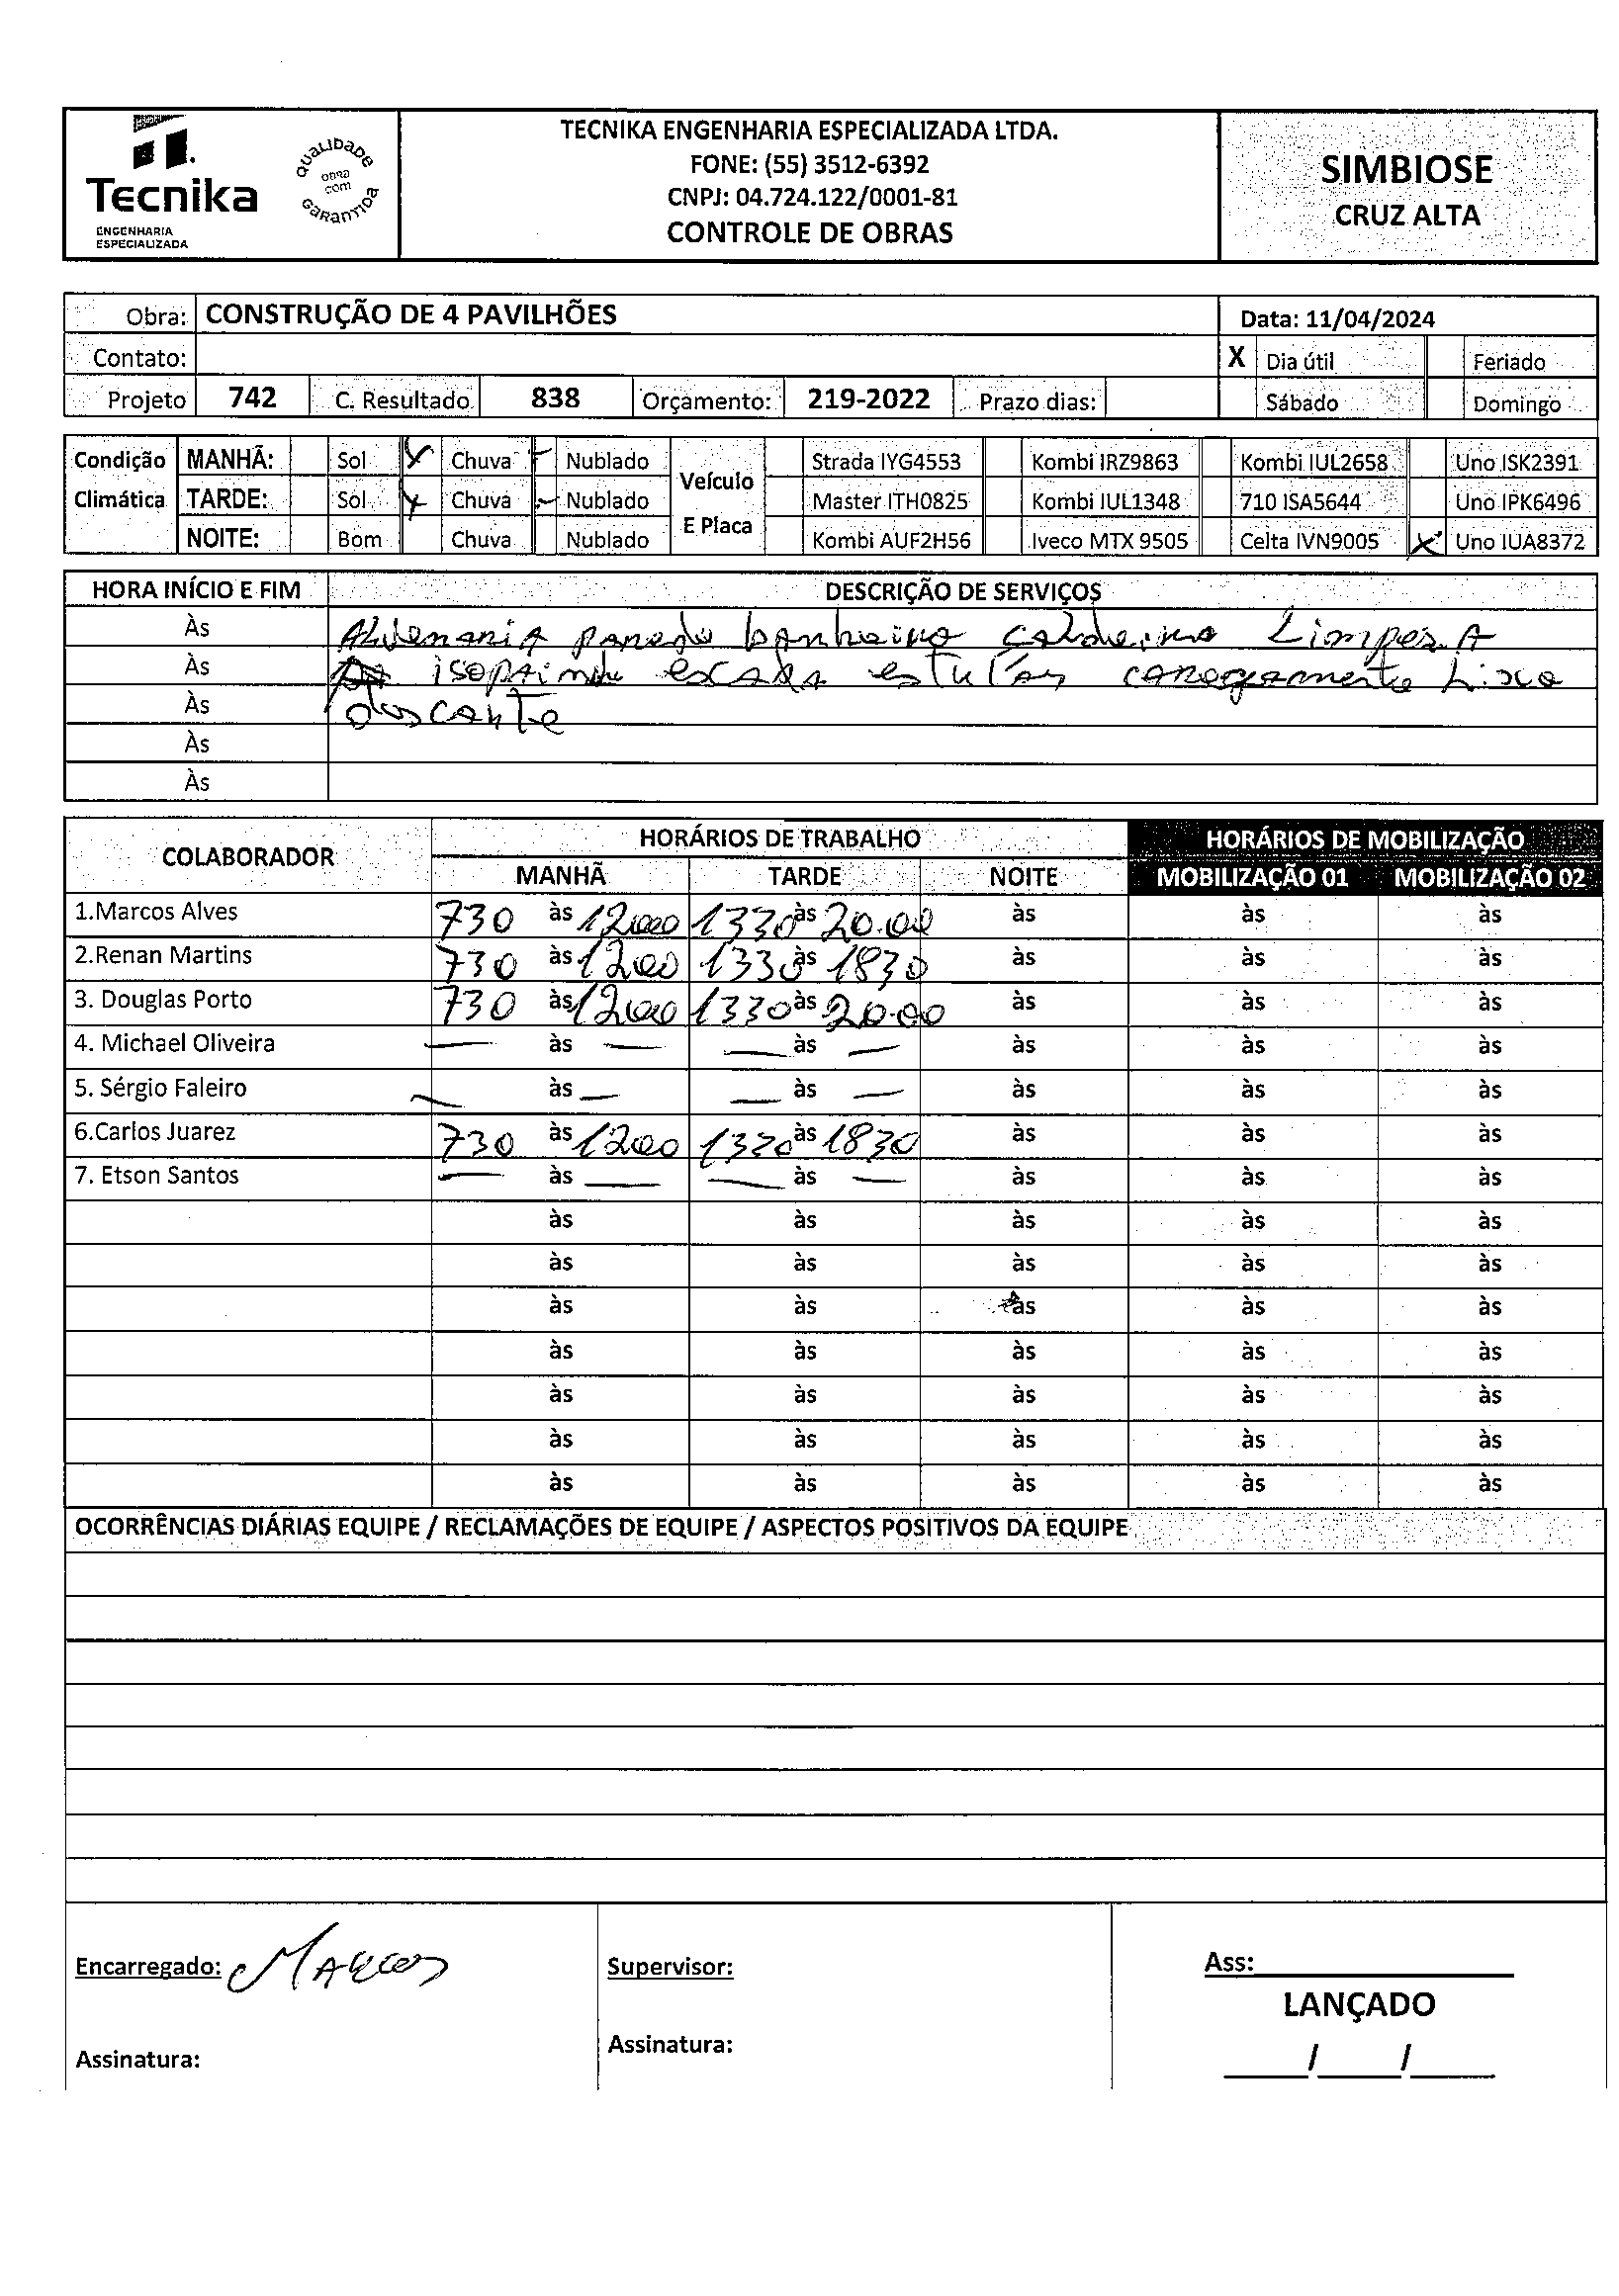 Tecnika
ENGENHARIA
ESPECIALIZADA
QUALIDADE
obra
com
GARANTIDA
TECNIKA ENGENHARIA ESPECIALIZADA LTDA.
FONE: (55) 3512-6392
CNPJ: 04.724.122/0001-81
CONTROLE DE OBRAS
SIMBIOSE
CRUZ ALTA
Obra: CONSTRUÇÃO DE 4 PAVILHÕES Data: 11/04/2024
Contato: X Dia útil Feriado
Projeto 742 C. Resultado 838 Orçamento: 219-2022 Prazo dias: Sábado Domingo
Condição Climática
MANHÃ: Sol X Chuva Nublado
TARDE: Sol X Chuva Nublado
NOITE: Bom Chuva Nublado
Veículo E Placa
Strada IYG4553 Kombi IRZ9863 Kombi IUL2658 Uno ISK2391
Master ITH0825 Kombi IUL1348 710 ISA5644 Uno IPK6496
Kombi AUF2H56 Iveco MTX 9505 Celta IVN9005 X Uno IUA8372
HORA INÍCIO E FIM DESCRIÇÃO DE SERVIÇOS
Às Alvenaria parede banheiro Limpesa
Às escada
Às
Às
Às
COLABORADOR HORÁRIOS DE TRABALHO HORÁRIOS DE MOBILIZAÇÃO
MANHÃ TARDE NOITE MOBILIZAÇÃO 01 MOBILIZAÇÃO 02
1.Marcos Alves 730 às 1200 1330 às 20.00 às às às
2.Renan Martins 730 às 1200 1330 às 1830 às às às
3. Douglas Porto 730 às 1200 1330 às 20.00 às às às
4. Michael Oliveira — às — — às — às às às
5. Sérgio Faleiro — às — — às — às às às
6.Carlos Juarez 730 às 1200 1330 às 1830 às às às
7. Etson Santos — às — — às — às às às
às às às às às
às às às às às
às às às às às
às às às às às
às às às às às
às às às às às
às às às às às
OCORRÊNCIAS DIÁRIAS EQUIPE / RECLAMAÇÕES DE EQUIPE / ASPECTOS POSITIVOS DA EQUIPE
Encarregado: Marcos
Assinatura:
Supervisor:
Assinatura:
Ass:
LANÇADO
____/____/____